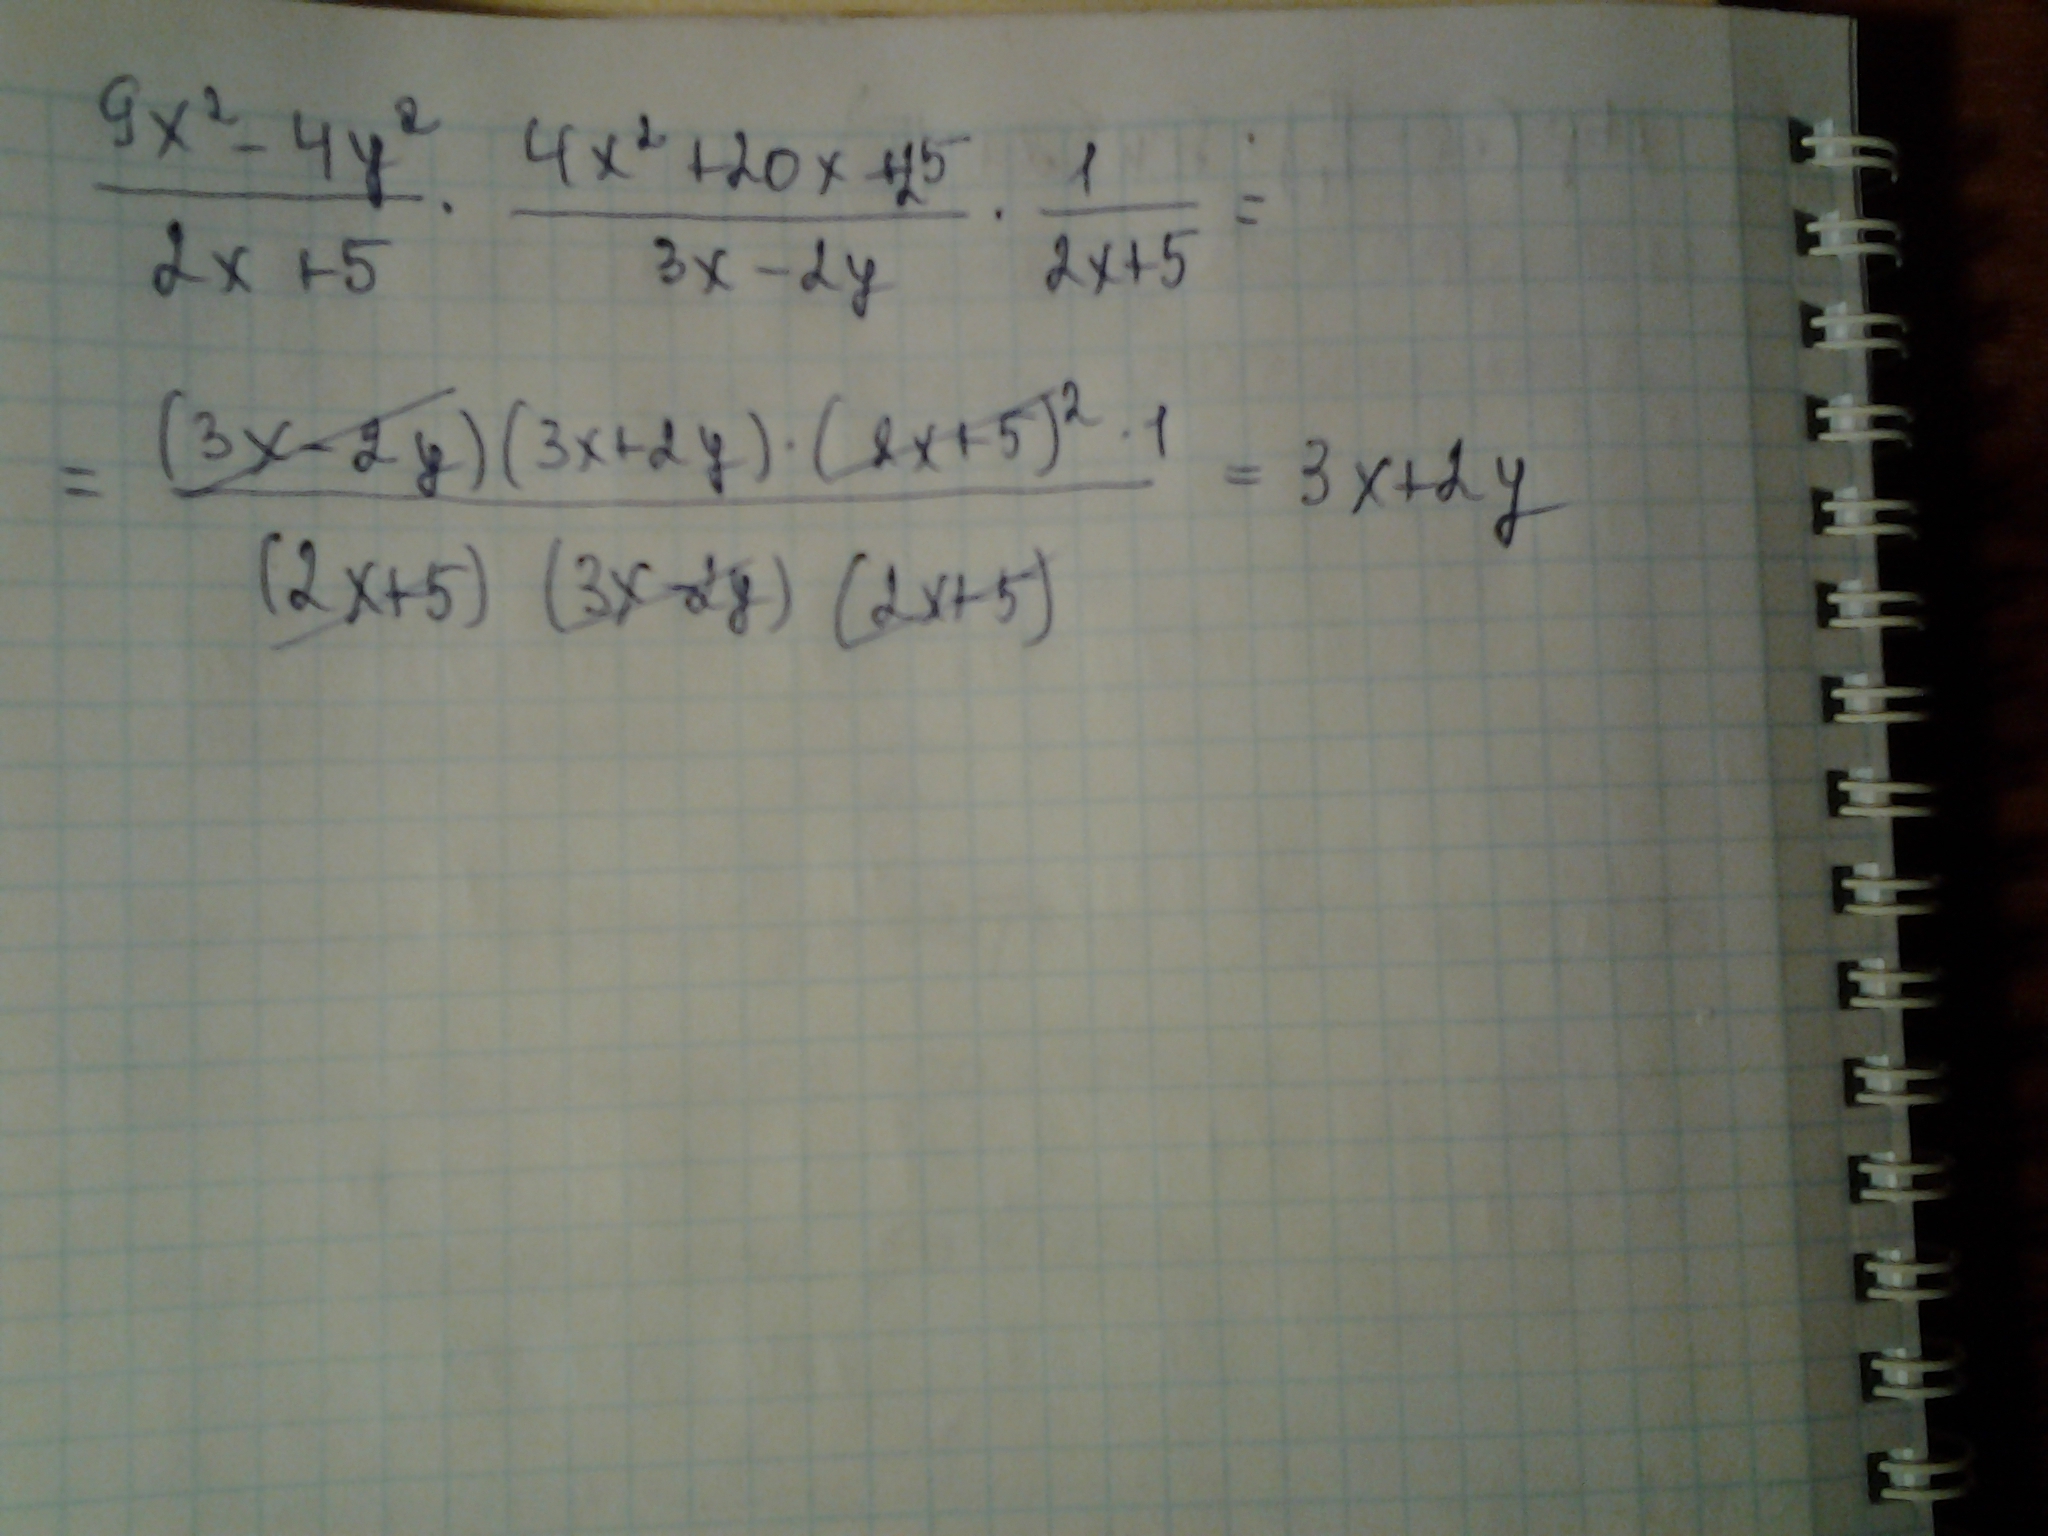 (9x² - 4y²)/(2x + 5) · (4x² + 20x + 25)/(3x - 2y) · 1/(2x + 5) =
= ((3x - 2y)(3x + 2y) · (2x + 5)² · 1)/((2x + 5) (3x - 2y) (2x + 5)) = 3x + 2y